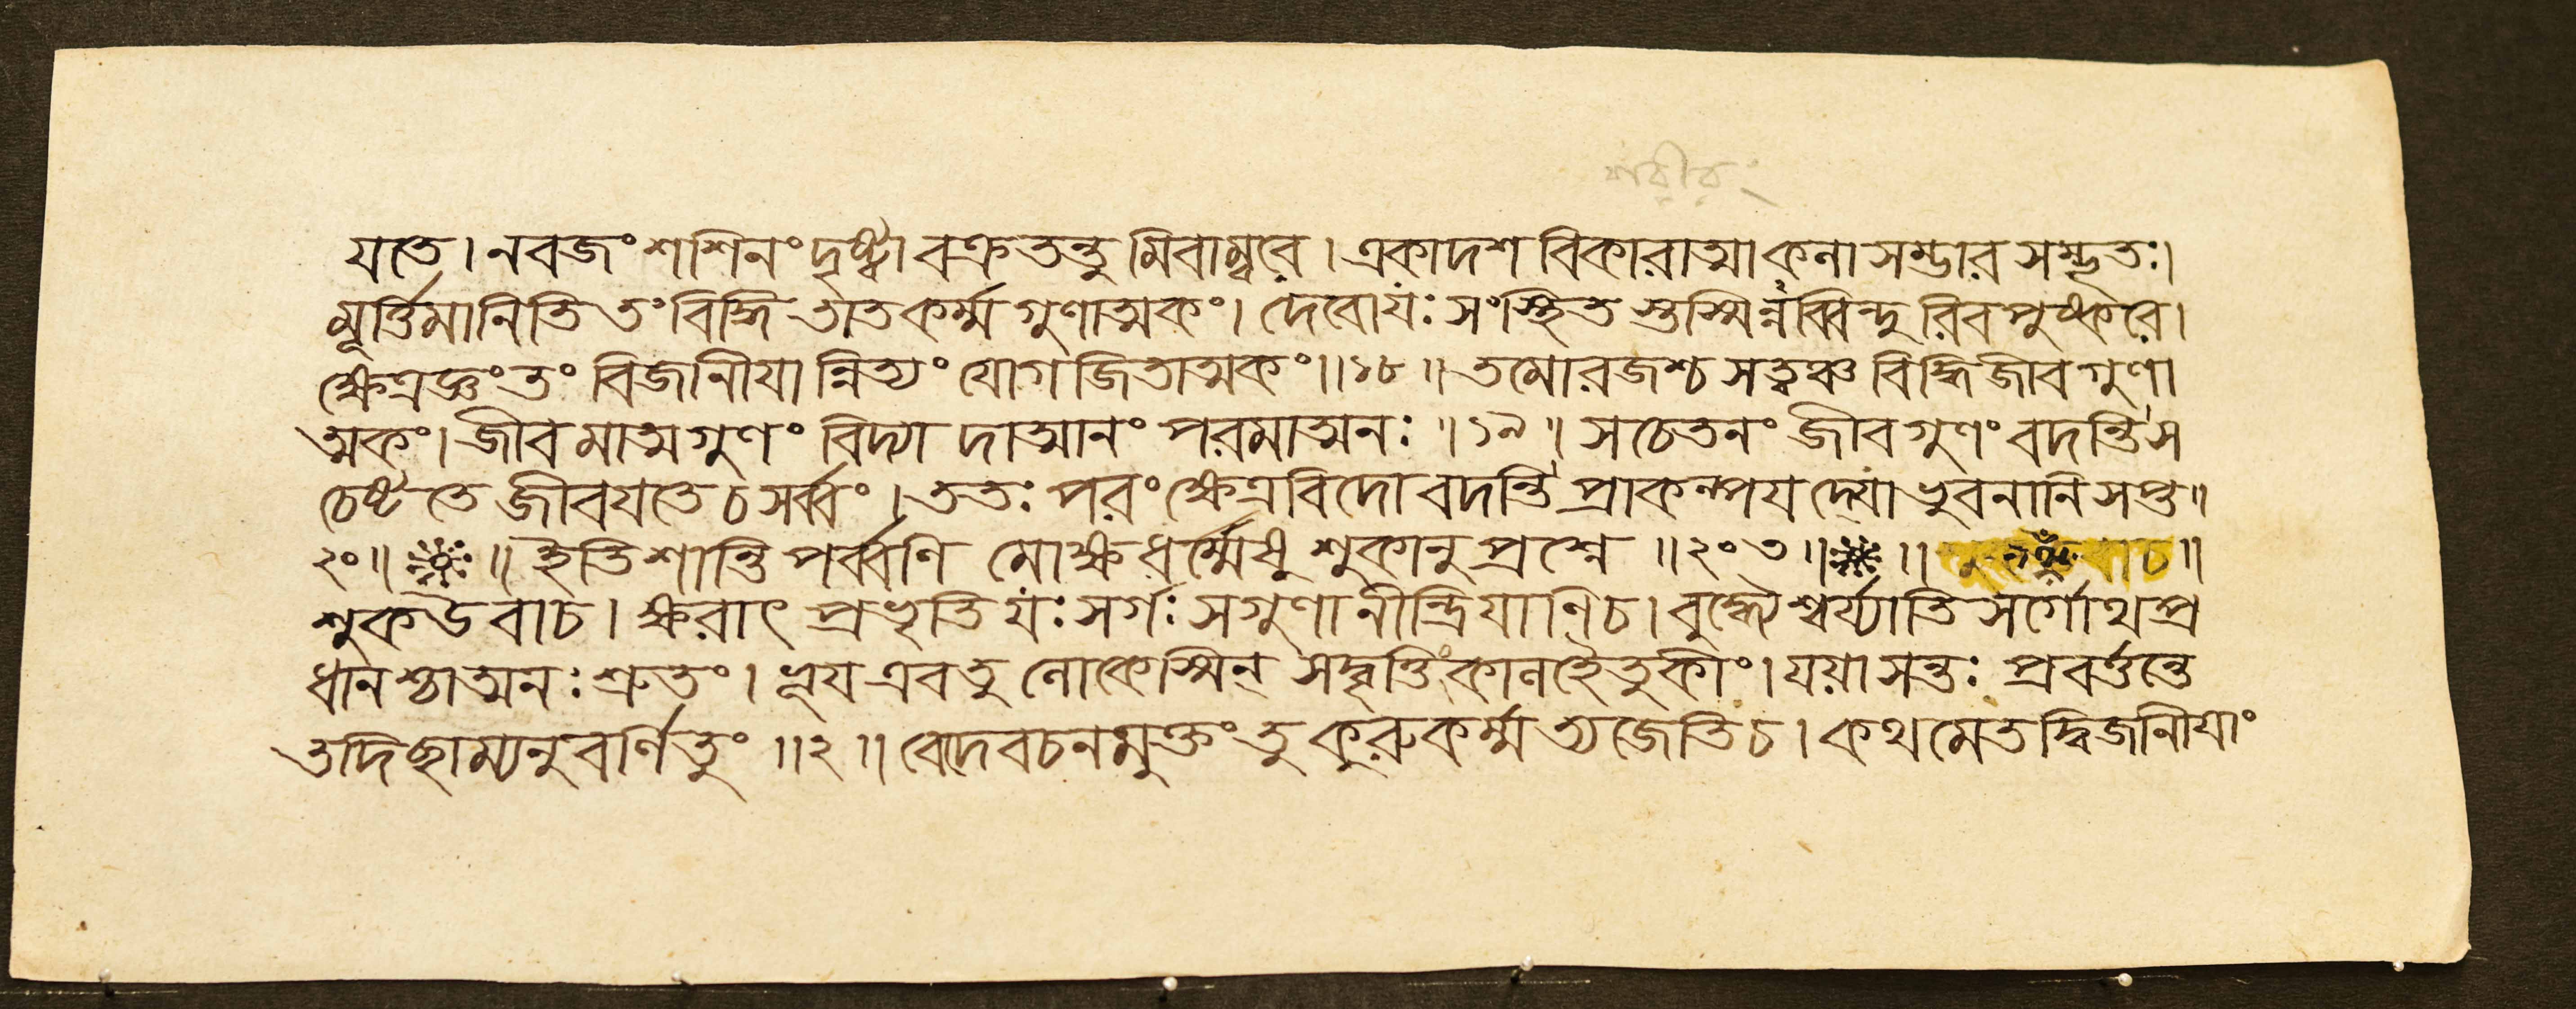 শরীরং
যতে। নবজং শশিনং দৃষ্ট্বা বক্রতন্তুমিবাম্বরে। একাদশবিকারাত্মা কলাসম্ভারসম্ভৃতঃ।
মূর্ত্তিমানিতি তং বিদ্ধি তাতকর্ম্মগুণাত্মকং। দেবো যঃ সংস্থিতস্তস্মিন্নব্বিন্দুরিব পুষ্করে।
ক্ষেত্রজ্ঞং তং বিজানীয়ান্নিত্যং যোগজিতাত্মকং॥১৮॥ তমোরজশ্চ সত্ত্বঞ্চ বিদ্ধি জীবগুণা
ত্মকং। জীবমাত্মগুণং বিদ্যাদাত্মানং পরমাত্মনঃ॥১৯॥ সচেতনং জীবগুণং বদন্তি স
চেষ্টতে জীবয়তে চ সর্ব্বং। ততঃ পরং ক্ষেত্রবিদো বদন্তি প্রাকল্পয়দ্যো ভুবনানি সপ্ত॥
২০॥ ॥ ইতি শান্তিপর্ব্বণি মোক্ষধর্ম্মেষু শুকানুপ্রশ্নে ॥২০৩॥ ॥ ॥
শুক উবাচ। ক্ষরাৎ প্রভৃতি যঃ সর্গঃ সগুণানীন্দ্রিয়াণি চ। বুদ্ধ্যৈশ্বর্য্যাতিসর্গোথ প্র
ধানশ্চাত্মনঃ শ্রুতং। ভূয় এব তু লোকেস্মিন্ সদ্বৃত্তিং কালহৈতুকীং। যয়া সন্তঃ প্রবর্ত্তন্তে
তদিচ্ছাম্যনুবর্ণিতুং ॥২॥ বেদবচনমুক্তং তু কুরু কর্ম্ম ত্যজেতি চ। কথমেতদ্বিজানীয়াং